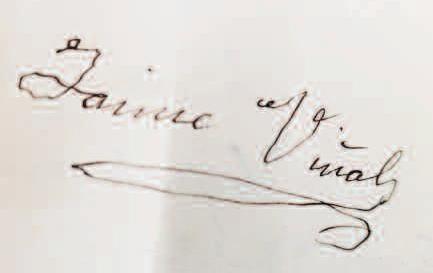 Jaime Viñals